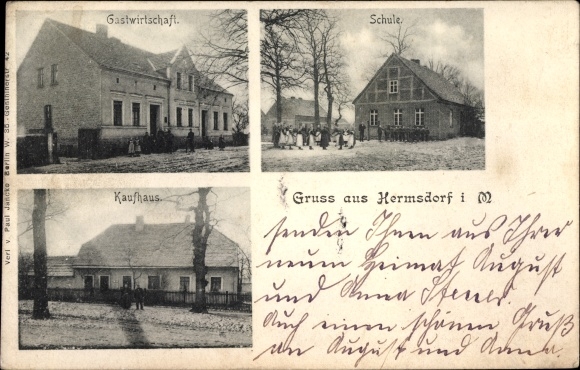 Gastwirtschaft.
Schule.
Kaufhaus.
Verl v. Paul Jancke Berlin W. 35 Genthinerstr. 42
Gruss aus Hermsdorf i M
senden Ihnen aus Ihrer
neuen Heimat August
und Anna
Auch einen schönen Gruß
an August und Anna.